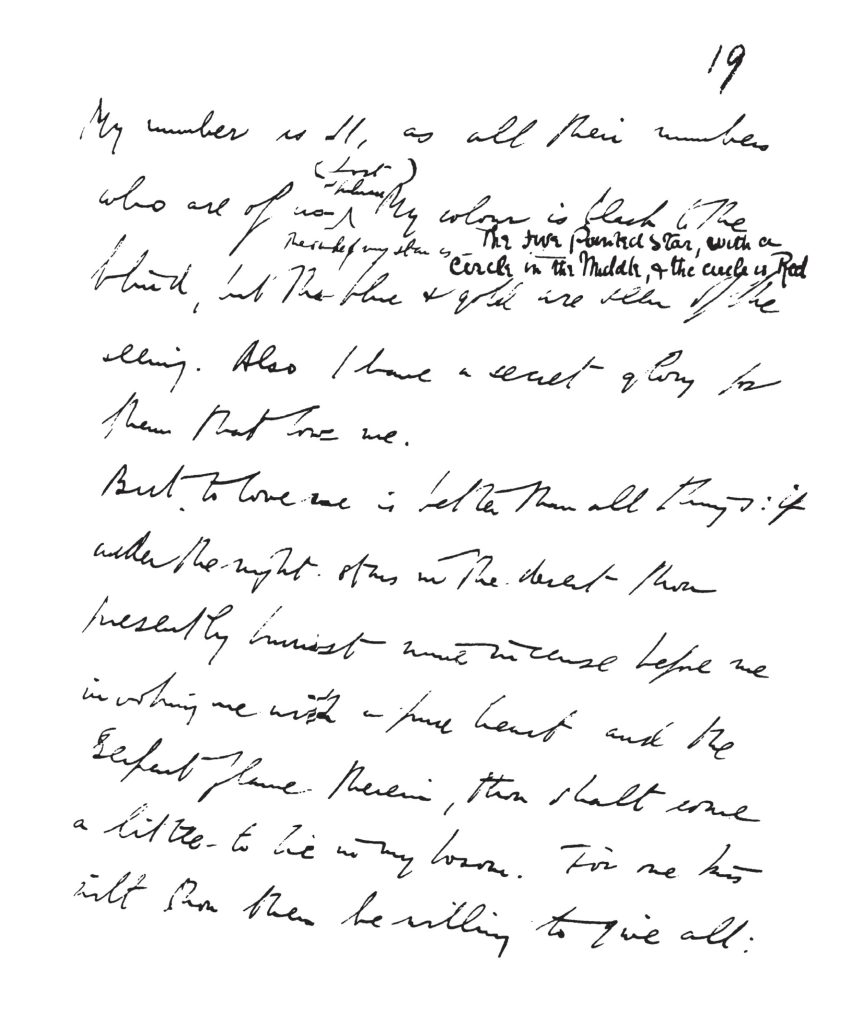 19
My number is 11, as all their numbers
(Lost
1 phrase)
who are of us. My colour is black to the
The shape of my star is — The Five Pointed Star, with a
Circle in the Middle, & the circle is Red
blind, but the blue & gold are seen of the
seeing. Also I have a secret glory for
them that love me.
But to love me is better than all things: if
under the night-stars in the desert thou
presently burnest mine incense before me
invoking me with a pure heart and the
Serpent flame therein, thou shalt come
a little to lie in my bosom. For one kiss
wilt thou then be willing to give all: